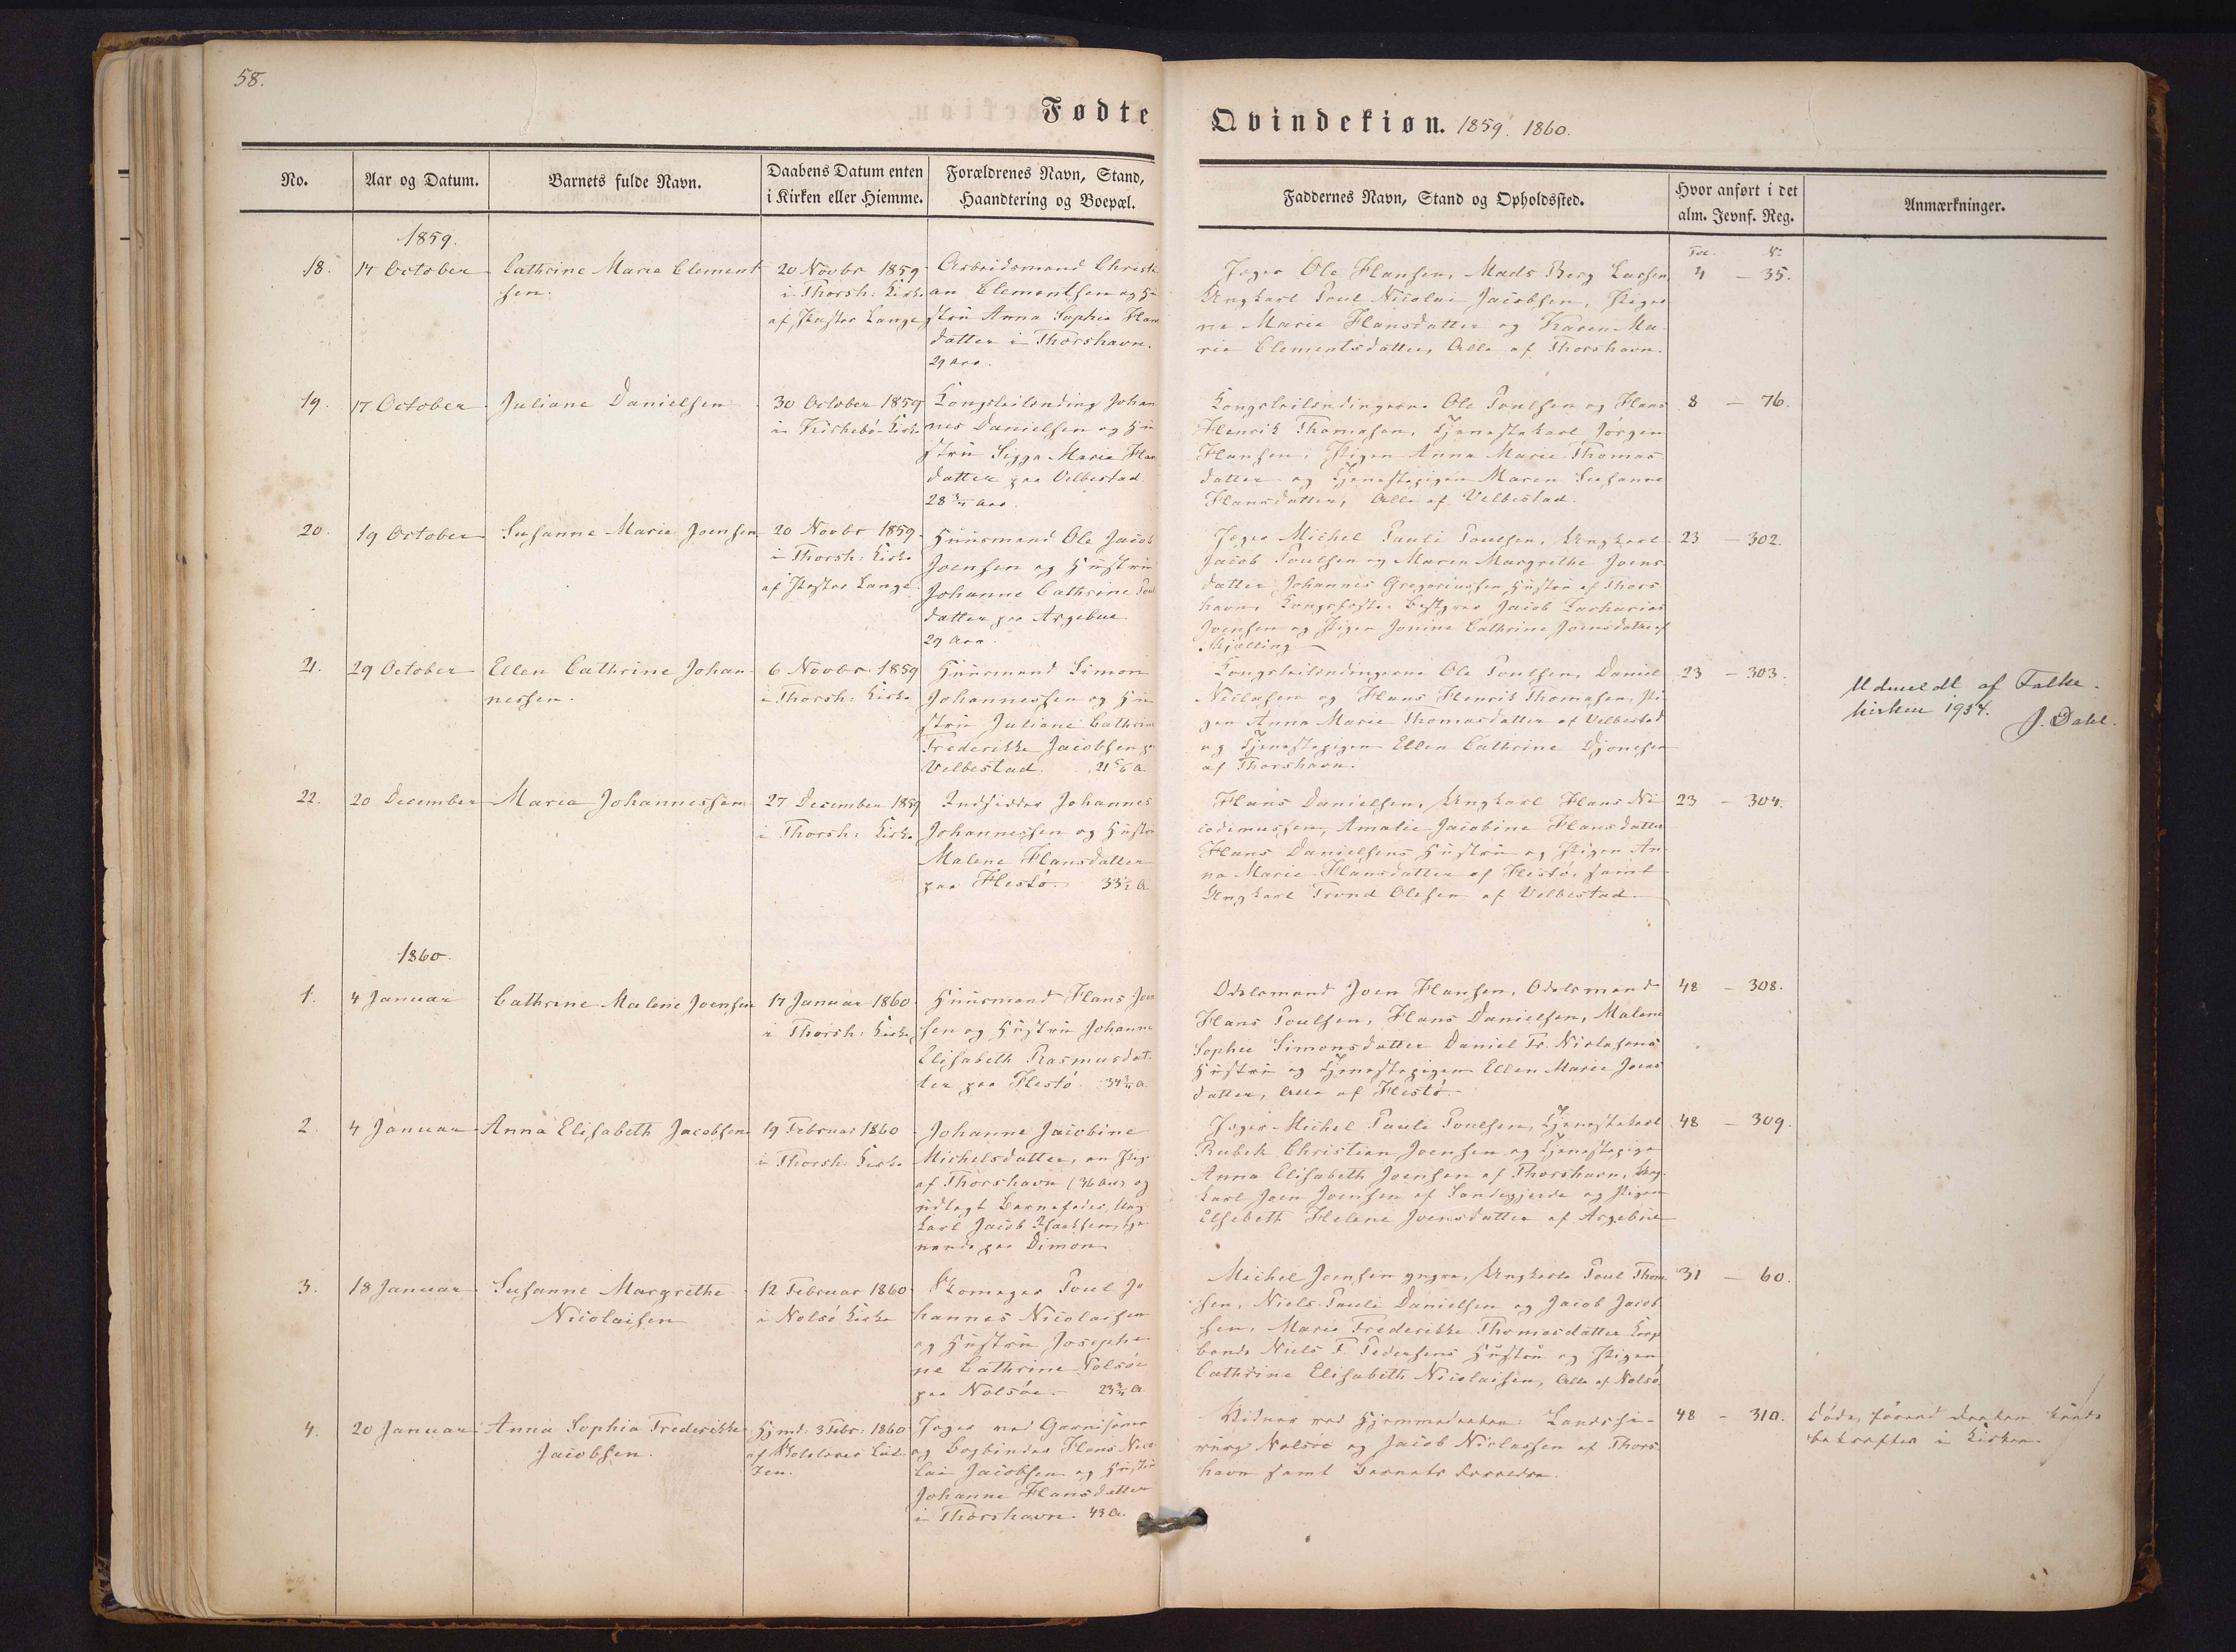 58.
Fødte
Qvindekiøn. 1859. 1860.
No.
Aar og Datum.
Barnets fulde Navn.
Daabens Datum enten
i Kirken eller Hiemme.
Forældrenes Navn, Stand,
Haandtering og Boepæl.
Faddernes Navn, Stand og Opholdssted.
Hvor anført i det
alm. Jevnf. Reg.
Anmærkninger.
1859.
Fol. N:
18.
14 October
Cathrine Marie Clement
sen.
20 Novbr 1859
i Thorsh: Kirke
af Pastor Lange
Arbeidsmand Christi
an Clementsen og Hu
stru Anna Sophie Hans
datter i Thorshavn.
29 Aar.
Jæger Ole Hansen, Mads Berg Larsen,
Ungkarl Poul Nicolai Jacobsen, Piger
ne Marie Hansdatter og Karen Ma
rie Clementsdatter, Alle af Thorshavn.
4 – 35.
19.
17 October
Juliane Danielsen
30 October 1859
i Kirkebø Kirke
Kongsleilending Johan
nes Danielsen og Hu
stru Sigga Marie Hans
datter paa Velbestad
28 Aar.
Kongsleilendingerne Ole Poulsen og Hans
Henrik Thomasen, Tjenestekarl Jørgen
Hansen, Pigen Anna Marie Thomas
datter og Tjenestepigen Maren Susanne
Hansdatter, Alle af Velbestad.
8 – 76.
20.
19 October
Susanne Marie Joensen
20 Novbr 1859
i Thorsh: Kirke
af Pastor Lange
Huusmand Ole Jacob
Joensen og Hustru
Johanne Cathrine Poul
datter paa Argeboe
29 Aar.
Jæger Michel Pauli Poulsen, Ungkarl
Jacob Poulsen og Maren Margrethe Joens
datter Johannes Gregoriussen Hustru af Thors
havn, Kongsfæste Bestyrer Jacob Zacharias
Joensen og Pigen Jonine Cathrine Joensdatter af
Skjælling
23 – 302.
21.
29 October
Ellen Cathrine Johan
nessen.
6 Novbr. 1859
i Thorsh: Kirke
Huusmand Simon
Johannessen og Hu
stru Juliane Cathrine
Frederikke Jacobsen p
Velbestad. 21 5/6 A
Kongsleilendingerne Ole Poulsen, Daniel
Niclasen og Hans Henrik Thomasen, Pi
gen Anna Marie Thomasdatter af Velbestad
og Tjenestepigen Ellen Cathrine Djonesen
af Thorshavn.
23 – 303.
Udmeldt af Folke-
kirken 1934. J. Dahl.
22.
20 December
Maria Johannessen
27 December 1859
i Thorsh: Kirke
Indsidder Johannes
Johannessen og Hustru
Malene Hansdatter
paa Hestø. 33½ A.
Hans Danielsen, Ungkarl Hans Ni
codemussen, Amalie Jacobine Hansdatter
Hans Danielsens Hustru og Pigen An
na Marie Hansdatter af Hestø, samt
Ungkarl Trond Olesen af Velbestad.
23 – 304.
1860.
1.
4 Januar
Cathrine Malene Joensen
17 Januar 1860
i Thorsh: Kirke
Huusmand Hans Joen
sen og Hustru Johanne
Elisabeth Rasmusdat
ter paa Hestø. 34 A.
Odelsmand Joen Hansen, Odelsmand
Hans Poulsen, Hans Danielsen, Malene
Sophie Simonsdatter Daniel Fr. Niclasens
Hustru og Tjenestepigen Ellen Marie Joens
datter, Alle af Hestø.
48 – 308.
2.
4 Januar
Anna Elisabeth Jacobsen
19 Februar 1860
i Thorsh: Kirke
Johanne Jacobine
Michelsdatter, en Pige
af Thorshavn (36 Aar) og
udlagt Barnefader, Ung
karl Jacob Isaksen, tje
nende paa Dimon
Jæger Michel Pauli Poulsen, Tjenestekarl
Rubek Christian Joensen og Tjenestepige
Anna Elisabeth Joensen af Thorshavn, Ung
karl Joen Joensen af Sandegjerde og Pigen
Elsebeth Helene Joensdatter af Argeboe
48 – 309.
3.
18 Januar
Susanne Margrethe
Nicolaisen
12 Februar 1860
i Nolsø Kirke
Skomager Poul Jo
hannes Nicolaisen
og Hustru Josephi
ne Cathrine Nolsøe
paa Nolsøe. 23 A.
Michel Joensen yngre, Ungkarle Poul Thom
sen, Niels Pauli Danielsen og Jacob Jacob
sen, Marie Frederikke Thomasdatter Kongs
bonde Niels F. Pedersens Hustru og Pigen
Cathrine Elisabeth Nicolaisen, Alle af Nolsø.
31 – 60.
4.
20 Januar
Anna Sophia Frederikke
Jacobsen.
Hjmd: 3 Febr: 1860
af Skolelærer Lüt
zen.
Jæger ved Garnisonen
og Bogbinder Hans Nico
lai Jacobsen og Hustru
Johanne Hansdatter
i Thorshavn. 43 A.
Vidner ved Hjemmedaaben: Landschi-
rurg Nolsøe og Jacob Niclassen af Thors
havn samt Barnets Forældre.
48 – 310.
Døde, førend Daaben kunde
bekræftes i Kirken.